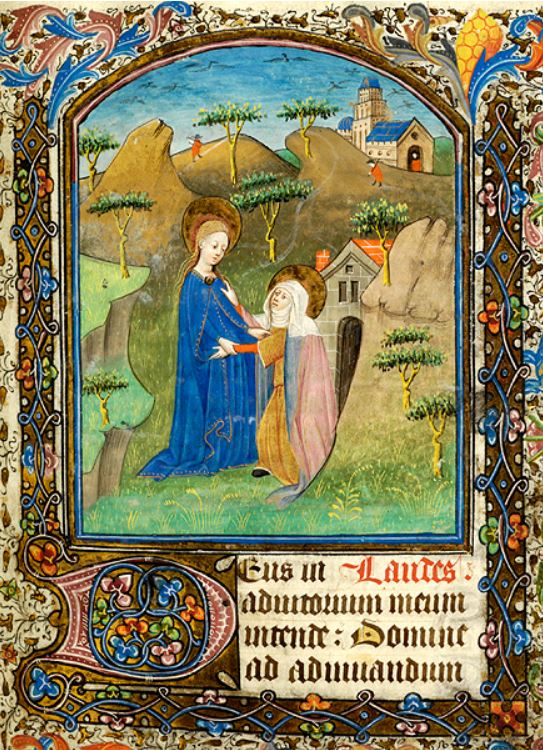 Deus in Laudes:
adiutorium meum
intende: Domine
ad adiuuandum